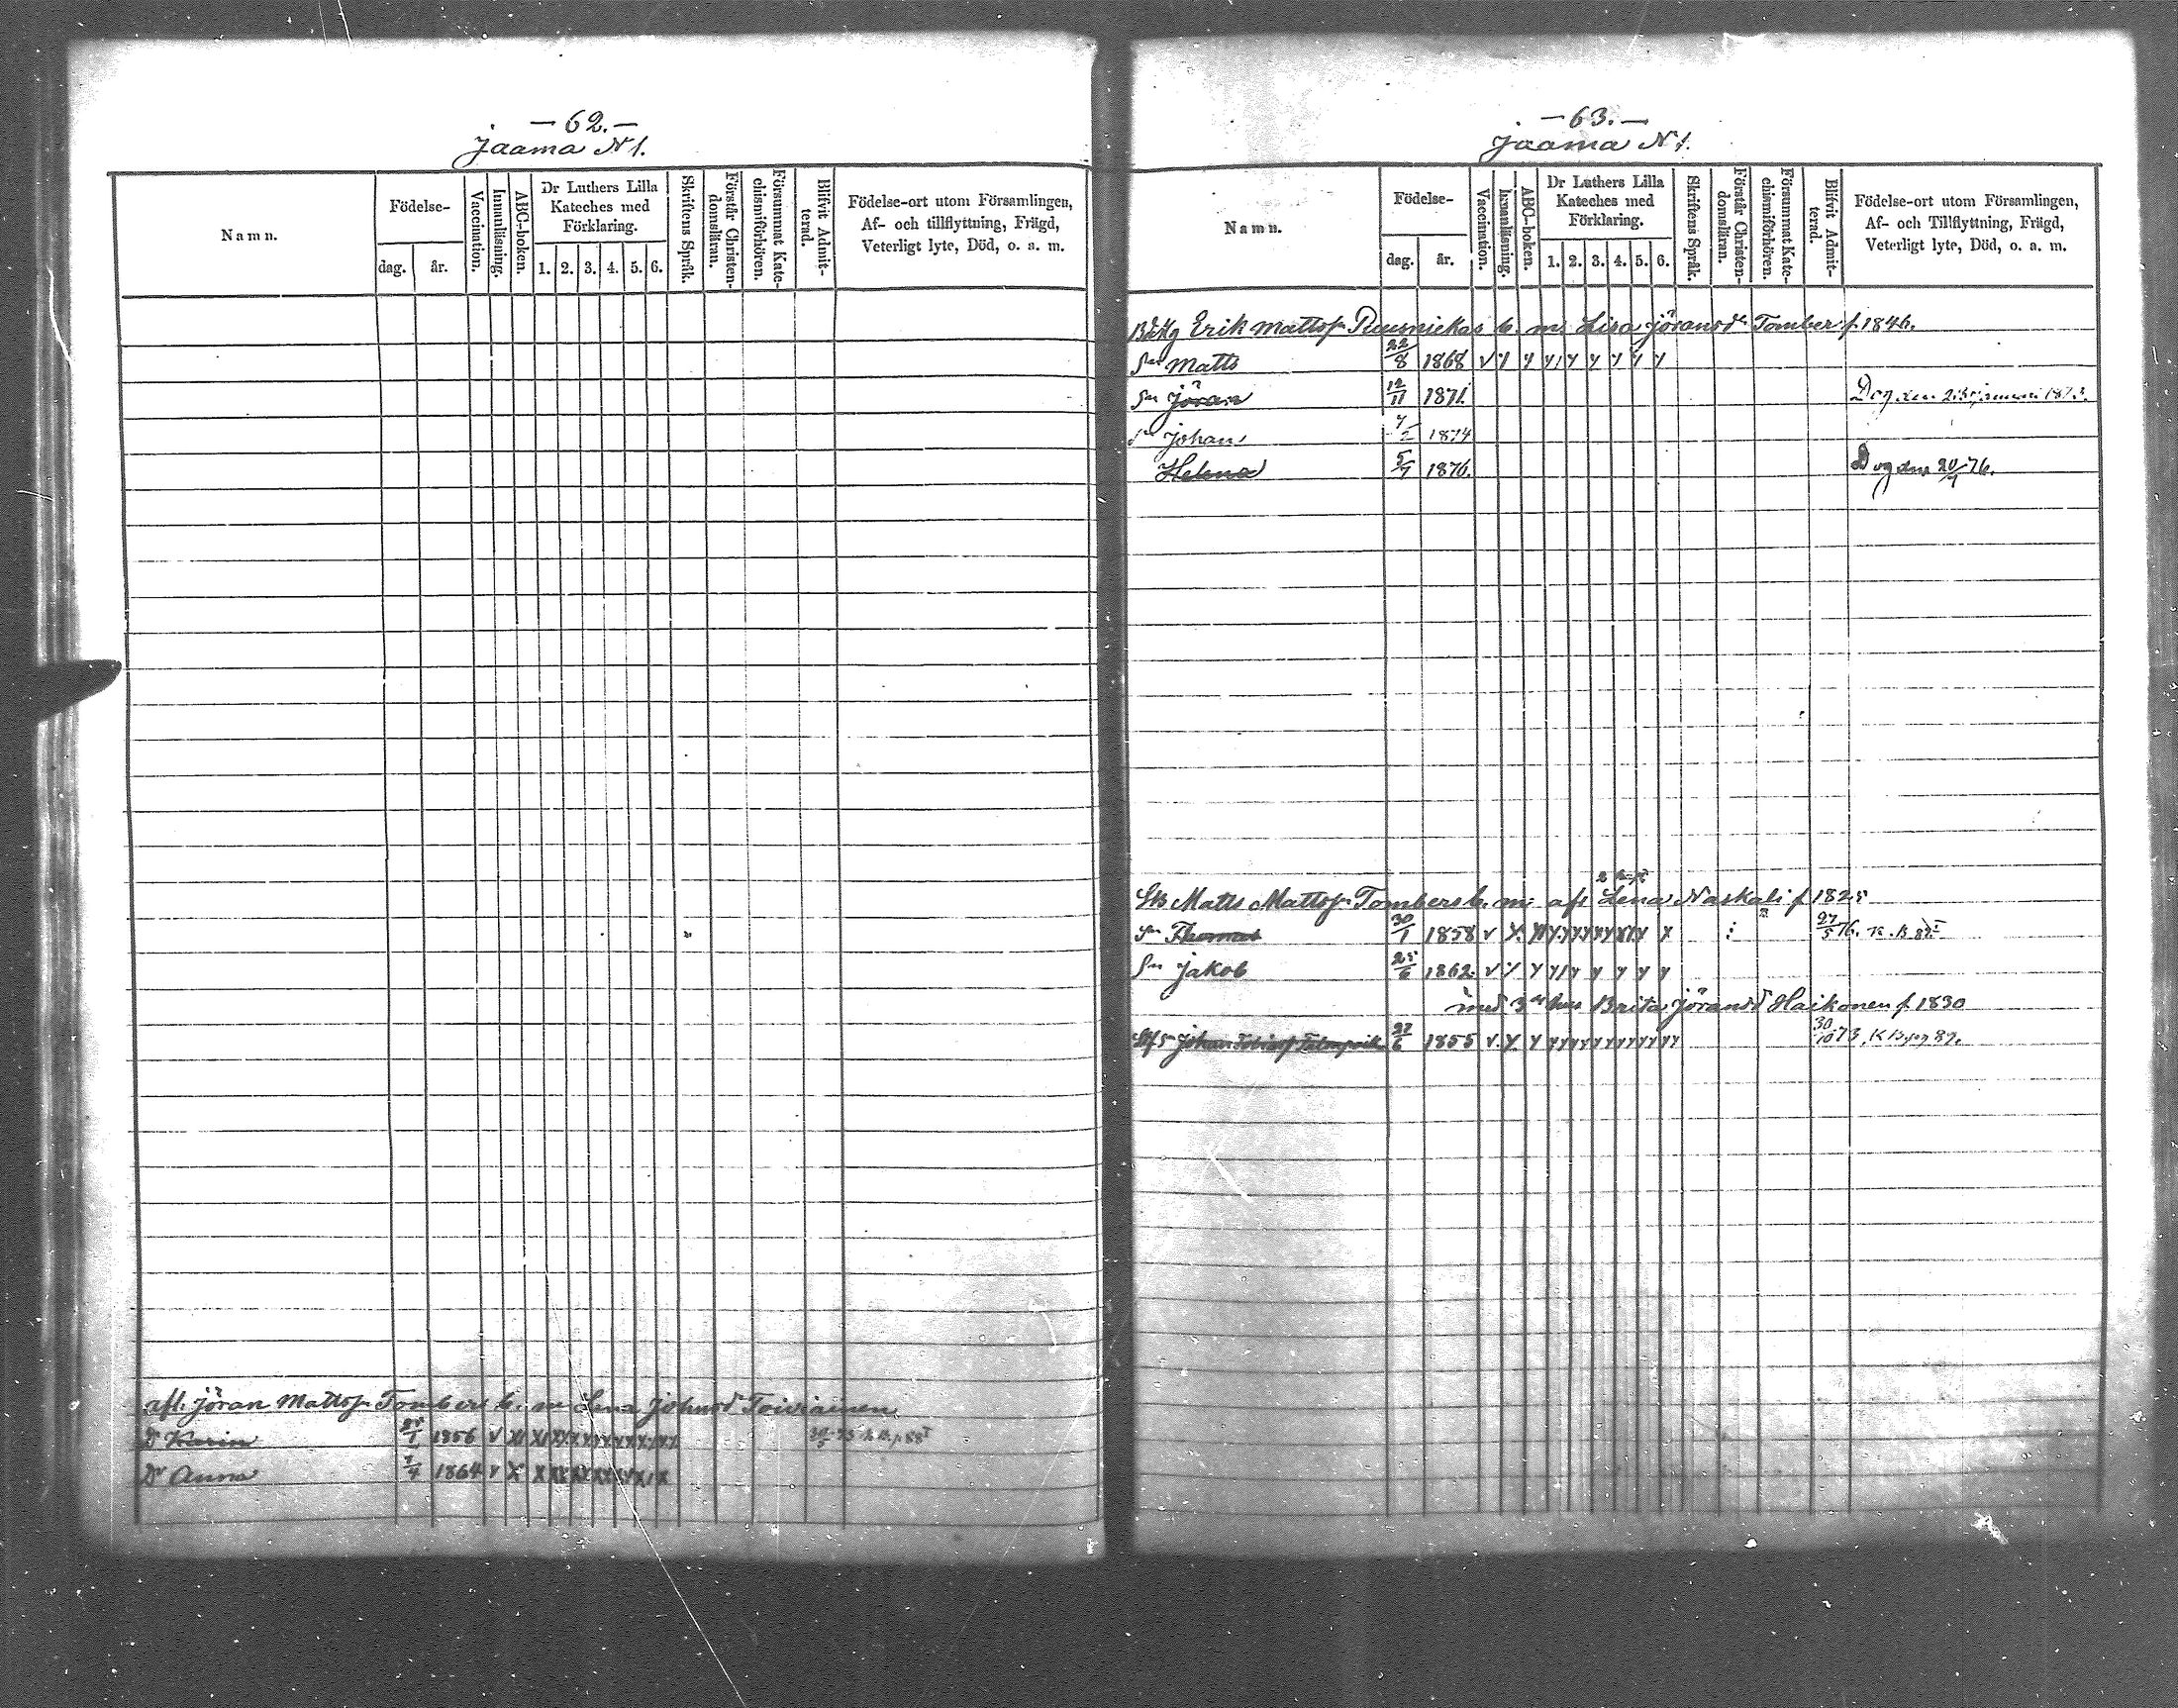 — 62. —
Jaama N 1.
Namn.
Födelse-
dag.
år.
Vaccination.
Innanläsning.
ABC-boken.
Dr Luthers Lilla Kateches med Förklaring.
1. 2. 3. 4. 5. 6.
Skriftens Språk.
Förstår Christen-domsläran.
Försummat Kate-chismiförhören.
Blifvit Admit-terad.
Födelse-ort utom Församlingen, Af- och tillflyttning, Frägd, Veterligt lyte, Död, o. a. m.
afl. Jöran Mattss. Tombers b. m Lena Johnsd Toiviainen
Dr Karin 1856
Dr Anna 7/4 1864
— 63. —
Jaama N 1.
Namn.
Födelse-
dag.
år.
Vaccination.
Innanläsning.
ABC-boken.
Dr Luthers Lilla Kateches med Förklaring.
1. 2. 3. 4. 5. 6.
Skriftens Språk.
Förstår Christen-domsläran.
Försummat Kate-chismiförhören.
Blifvit Admit-terad.
Födelse-ort utom Församlingen, Af- och Tillflyttning, Frägd, Veterligt lyte, Död, o. a. m.
Erik Mattss. b. m. Lisa Jöransdr Tomber f. 1846.
Sn Matts 22/8 1868
Sn Jöran 12/11 1871. Dog den 1873.
Sn Johan 1874
Helena 5/7 1876. Dog den 20/9 76.
Matts Mattss. Tombers b. m. afl Lena Naskali f 1825
Sn Thomas 30/1 1858 27/5 76. K. B. 87
Sn Jakob 25/6 1862.
med 3dje hus Brita Jöransd Haikonen f. 1830
Johan 22/6 1855 30/10 73, K B. pag 87.